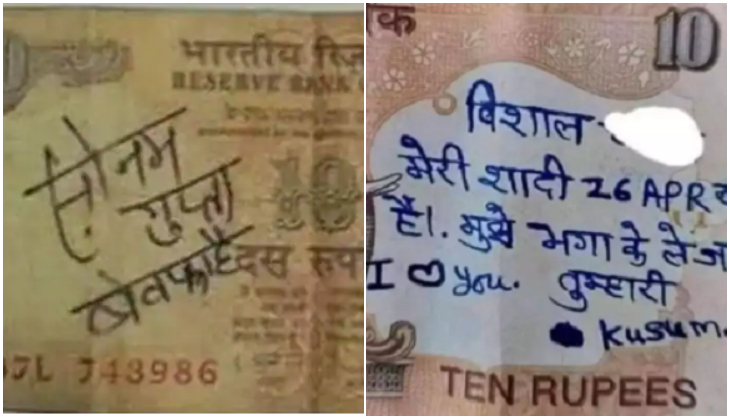 भारतीय रिज़
RESERVE BANK
सोनम
गुप्ता
बेवफा है
10
दस रुप
37L 743986
क
10
विशाल
मेरी शादी 26 APR
है। मुझे भगा के ले ज
I ♡ you. तुम्हारी
kusum.
TEN RUPEES